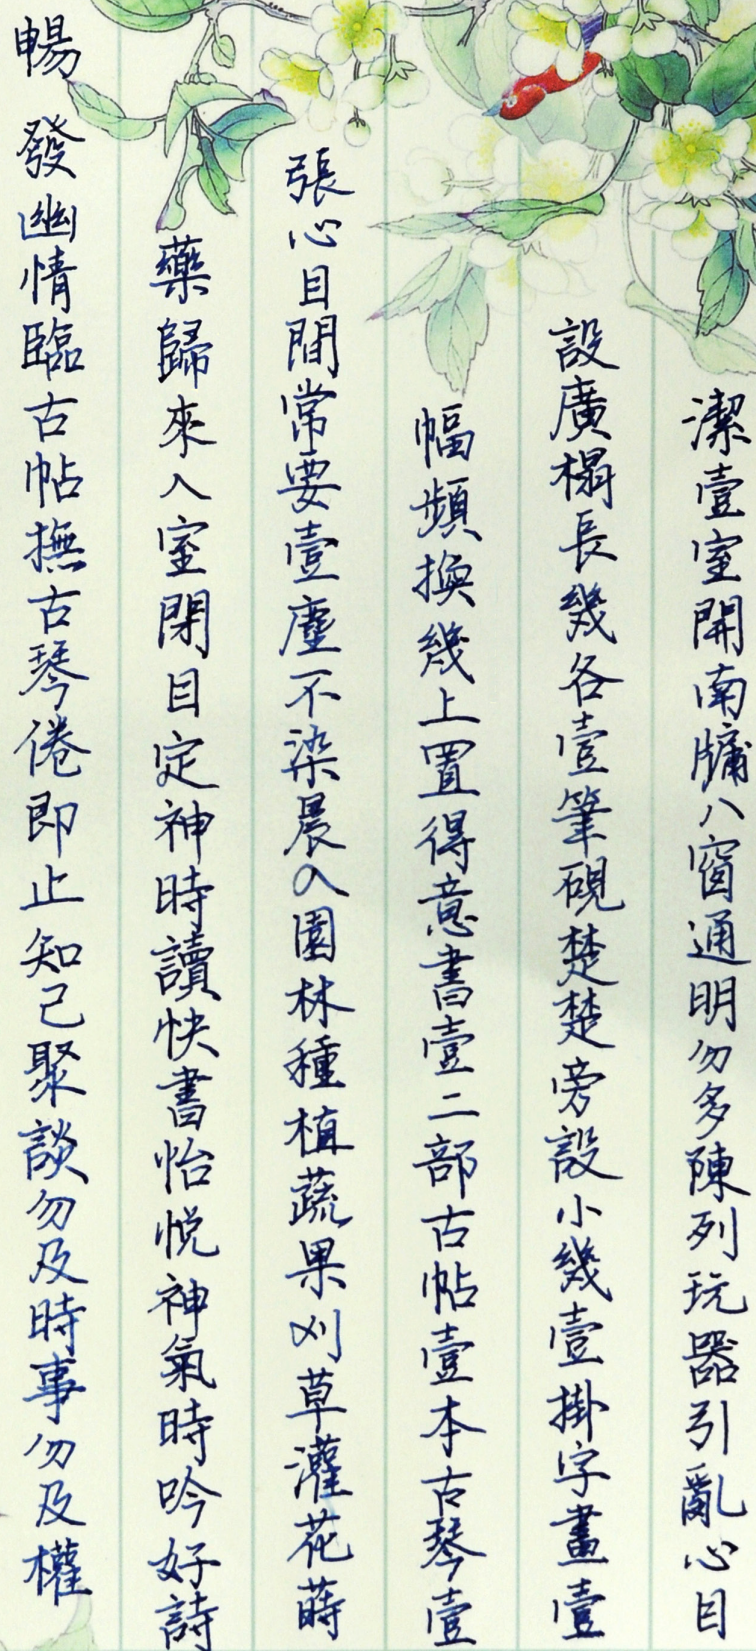 潔壹室開南牖八窗通明勿多陳列玩器引亂心目
設廣榻長幾各壹筆硯楚楚旁設小幾壹掛字畫壹
幅頻換幾上置得意書壹二部古帖壹本古琴壹
張心目間常要壹塵不染晨入園林種植蔬果刈草灌花蒔
藥歸來入室閉目定神時讀快書怡悅神氣時吟好詩
暢發幽情臨古帖撫古琴倦即止知己聚談勿及時事勿及權